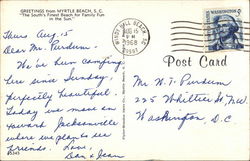 GREETINGS from MYRTLE BEACH, S. C.
"The South's Finest Beach for Family Fun
in the Sun"
Thurs Aug. 15
Dear Mr. Purdum.
We've been camping
here since Sunday,
perfectly beautiful.
Today we move on
toward Jacksonville
where we plan to see
friends. Love,
Dan & Jean
MYRTLE BEACH, SC
AUG 15
PM
1968
WASHINGTON
Post Card
Mr. W. T. Purdum
225 Whittier St. NW
Washington, D.C.